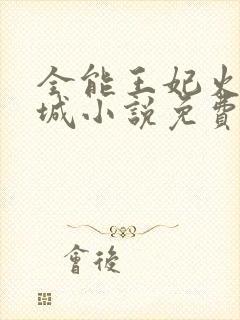 全能王妃火
城小說免費
會後